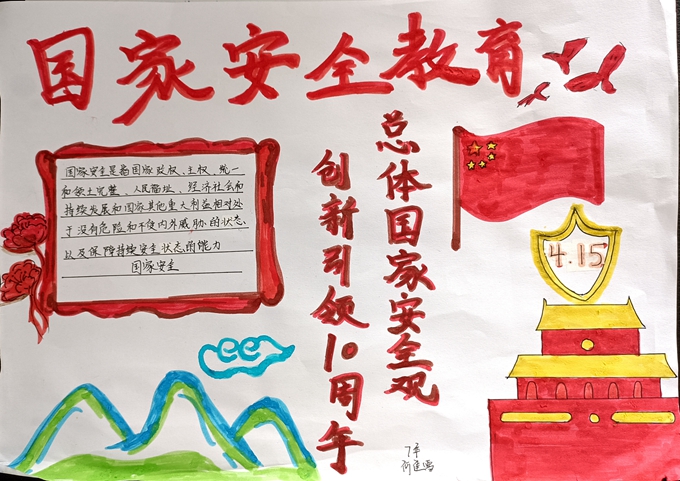 国家安全教育
国家安全是指国家政权、主权、统一
和领土完整、人民福址、经济社会和
持续发展和国家其他重大利益相对处
于没有危险和不受内外威胁的状态,
以及保障持续安全状态的能力
国家安全
总体国家安全观
创新引领10周年
4.15